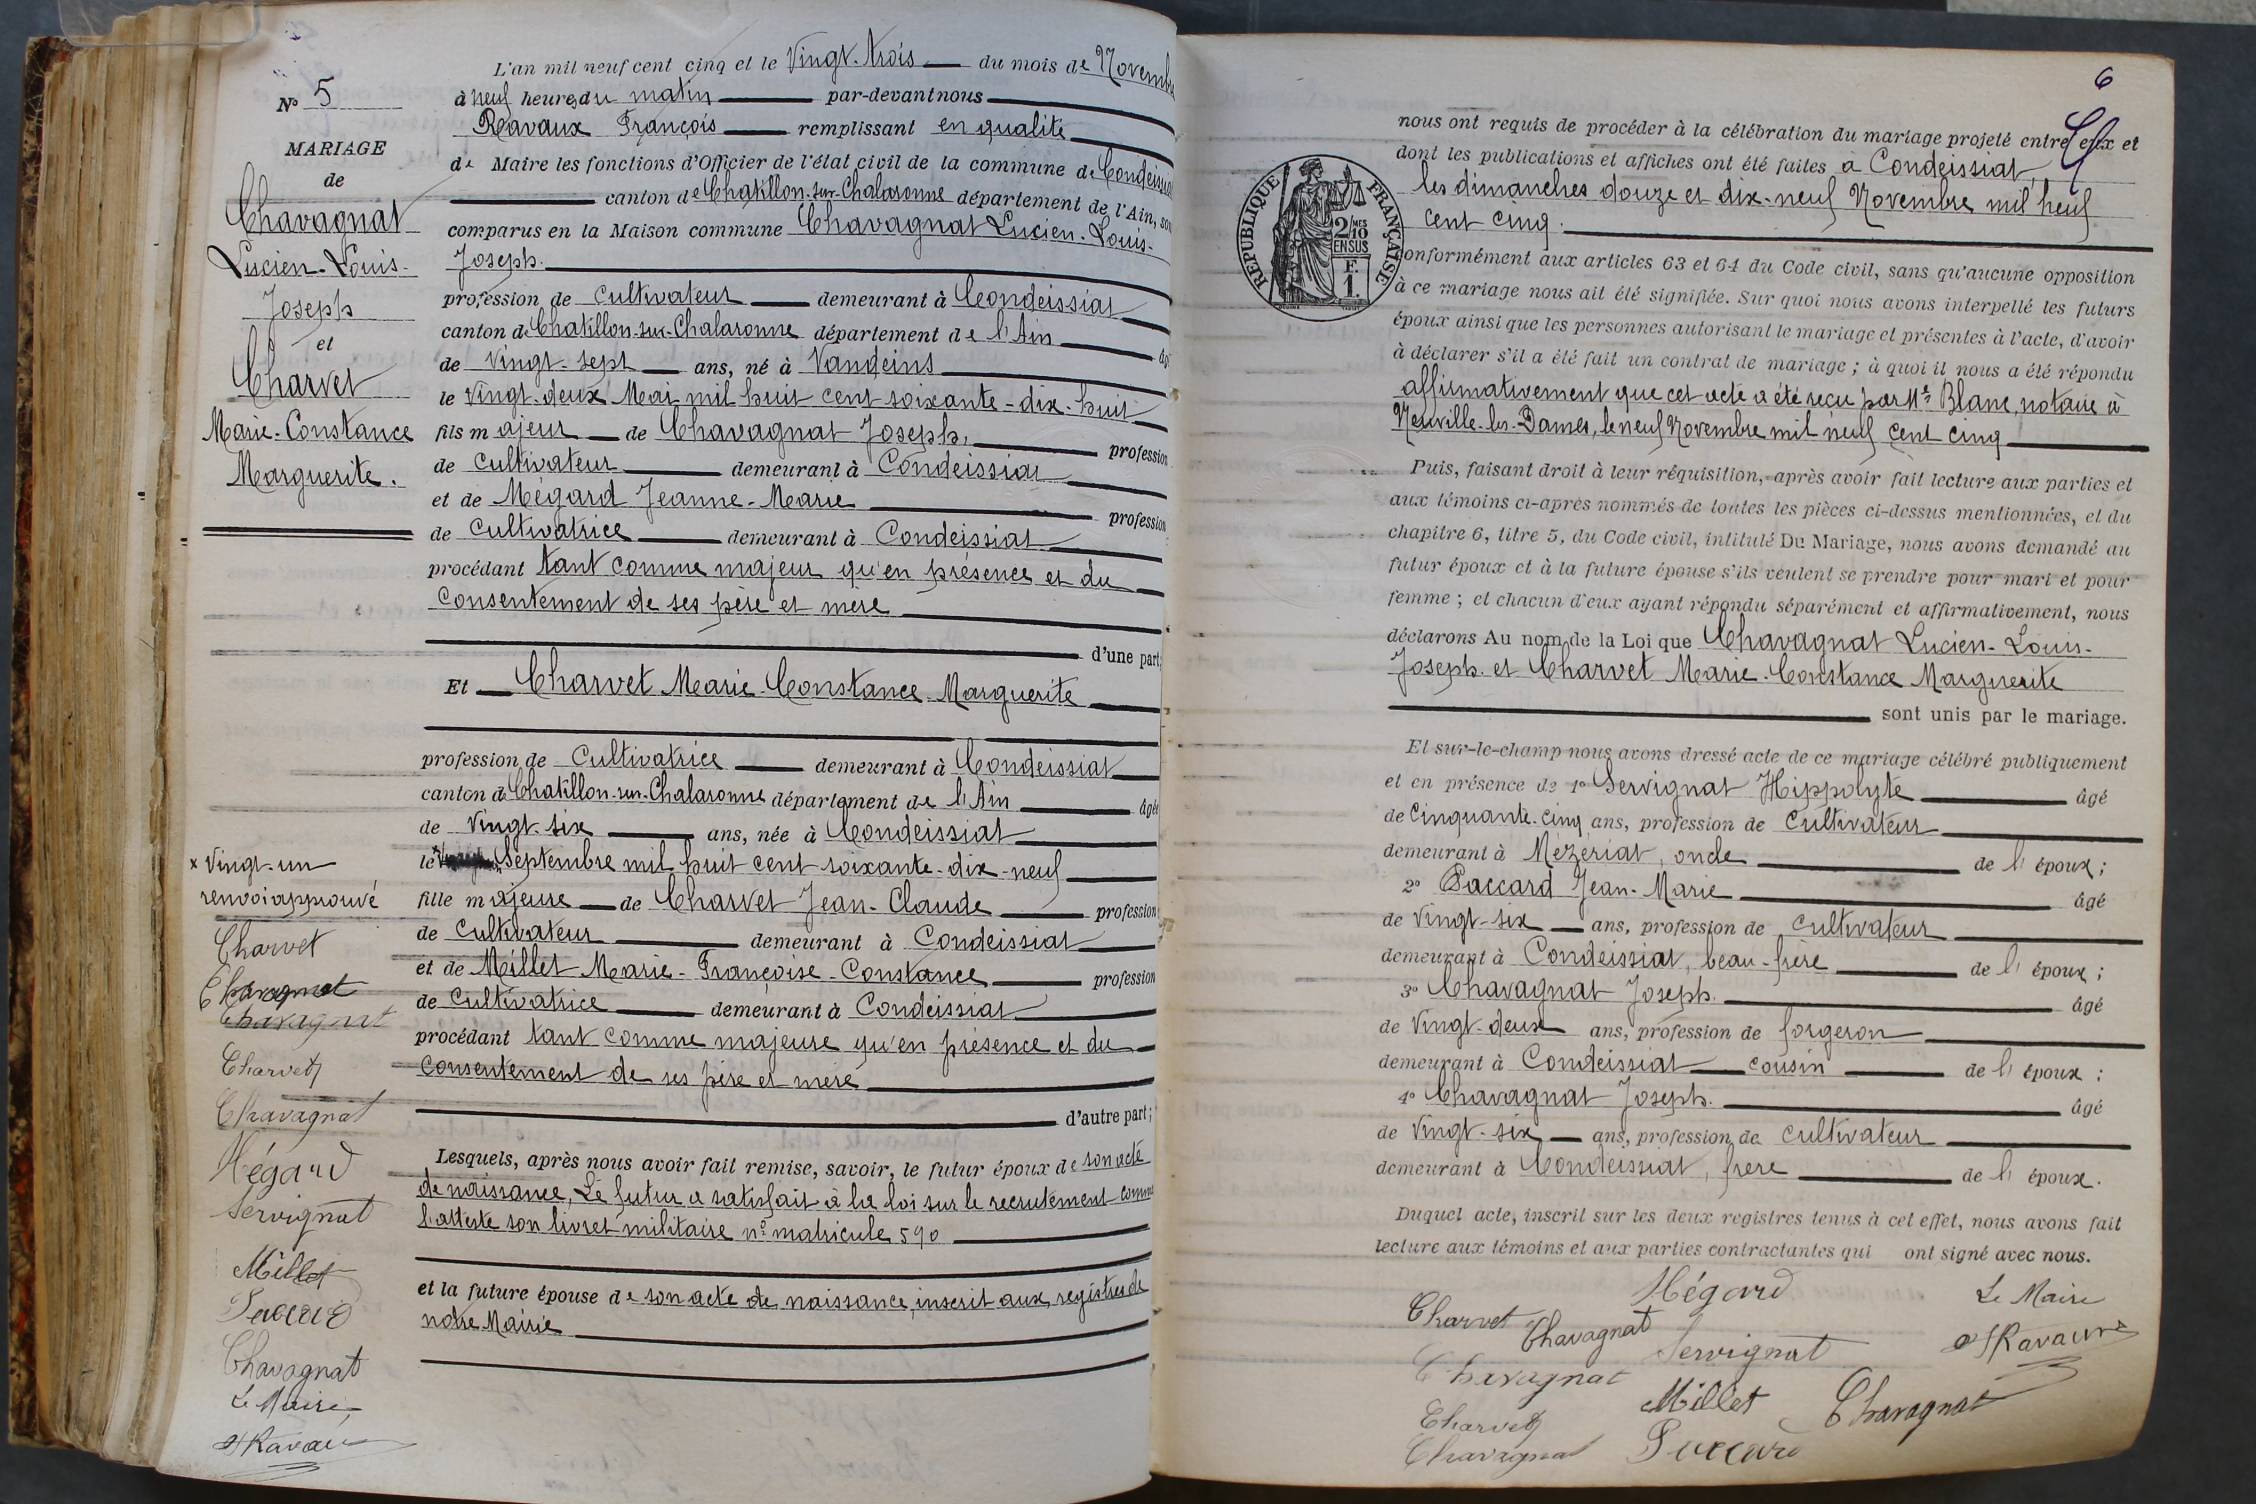 N° 5
MARIAGE
de
Chavagnat
Lucien-Louis-
Joseph
et
Charvet
Marie-Constance
Marguerite.
x Vingt-un
renvoi approuvé
Charvet
Chavagnat
Chavagnat
Charvet
Chavagnat
Mégard
Servignat
Millet
Paccard
Chavagnat
Le Maire,
Ravaux
L'an mil neuf cent cinq et le Vingt-trois du mois de Novembre
à neuf heures du matin par-devant nous
Ravaux François remplissant en qualité
de Maire les fonctions d'Officier de l'état civil de la commune de Condeissiat
canton de Chatillon-sur-Chalaronne département de l'Ain, sont
comparus en la Maison commune Chavagnat Lucien-Louis-
Joseph.
profession de cultivateur demeurant à Condeissiat
canton de Chatillon-sur-Chalaronne département de l'Ain âgé
de vingt-sept ans, né à Vandeins
le vingt-deux Mai mil huit cent soixante-dix-huit
fils majeur de Chavagnat Joseph, profession
de cultivateur demeurant à Condeissiat
et de Mégard Jeanne-Marie profession
de cultivatrice demeurant à Condeissiat
procédant tant comme majeur qu'en présence et du
consentement de ses père et mère
d'une part;
Et Charvet Marie-Constance-Marguerite
profession de cultivatrice demeurant à Condeissiat
canton de Chatillon-sur-Chalaronne département de l'Ain âgée
de vingt-six ans, née à Condeissiat
le x Septembre mil huit cent soixante-dix-neuf
fille majeure de Charvet Jean-Claude profession
de cultivateur demeurant à Condeissiat
et de Millet Marie-Françoise-Constance profession
de cultivatrice demeurant à Condeissiat
procédant tant comme majeure qu'en présence et du
consentement de ses père et mère
d'autre part;
Lesquels, après nous avoir fait remise, savoir, le futur époux de son acte
de naissance, Le futur a satisfait à la loi sur le recrutement comme
l'atteste son livret militaire n° matricule 590
et la future épouse de son acte de naissance, inscrit aux registres de
notre Mairie
6
nous ont requis de procéder à la célébration du mariage projeté entre eux et
dont les publications et affiches ont été faites a Condeissiat,
les dimanches douze et dix-neuf Novembre mil neuf
cent cinq.
RÉPUBLIQUE FRANÇAISE
2/10 MES
EN SUS
F.
1.
conformément aux articles 63 et 64 du Code civil, sans qu'aucune opposition
à ce mariage nous ait été signifiée. Sur quoi nous avons interpellé les futurs
époux ainsi que les personnes autorisant le mariage et présentes à l'acte, d'avoir
à déclarer s'il a été fait un contrat de mariage ; à quoi il nous a été répondu
affirmativement que cet acte a été reçu par Me Blanc, notaire à
Neuville-les-Dames, le neuf Novembre mil neuf cent cinq
Puis, faisant droit à leur réquisition, après avoir fait lecture aux parties et
aux témoins ci-après nommés de toutes les pièces ci-dessus mentionnées, et du
chapitre 6, titre 5, du Code civil, intitulé Du Mariage, nous avons demandé au
futur époux et à la future épouse s'ils veulent se prendre pour mari et pour
femme ; et chacun d'eux ayant répondu séparément et affirmativement, nous
déclarons Au nom de la Loi que Chavagnat Lucien-Louis-
Joseph. et Charvet Marie-Constance Marguerite
sont unis par le mariage.
Et sur-le-champ nous avons dressé acte de ce mariage célébré publiquement
et en présence de 1° Servignat Hippolyte âgé
de cinquante-cinq ans, profession de cultivateur
demeurant à Mézériat, oncle de l'époux ;
2° Paccard Jean-Marie âgé
de vingt-six ans, profession de cultivateur
demeurant à Condeissiat, beau-frère de l'époux ;
3° Chavagnat Joseph. âgé
de vingt-deux ans, profession de forgeron
demeurant à Condeissiat cousin de l'époux ;
4° Chavagnat Joseph. âgé
de vingt-six ans, profession de cultivateur
demeurant à Condeissiat, frère de l'époux.
Duquel acte, inscrit sur les deux registres tenus à cet effet, nous avons fait
lecture aux témoins et aux parties contractantes qui ont signé avec nous.
Mégard Le Maire
Charvet Chavagnat Servignat Ravaux
Chavagnat Millet Chavagnat
Charvet
Chavagnat Paccard